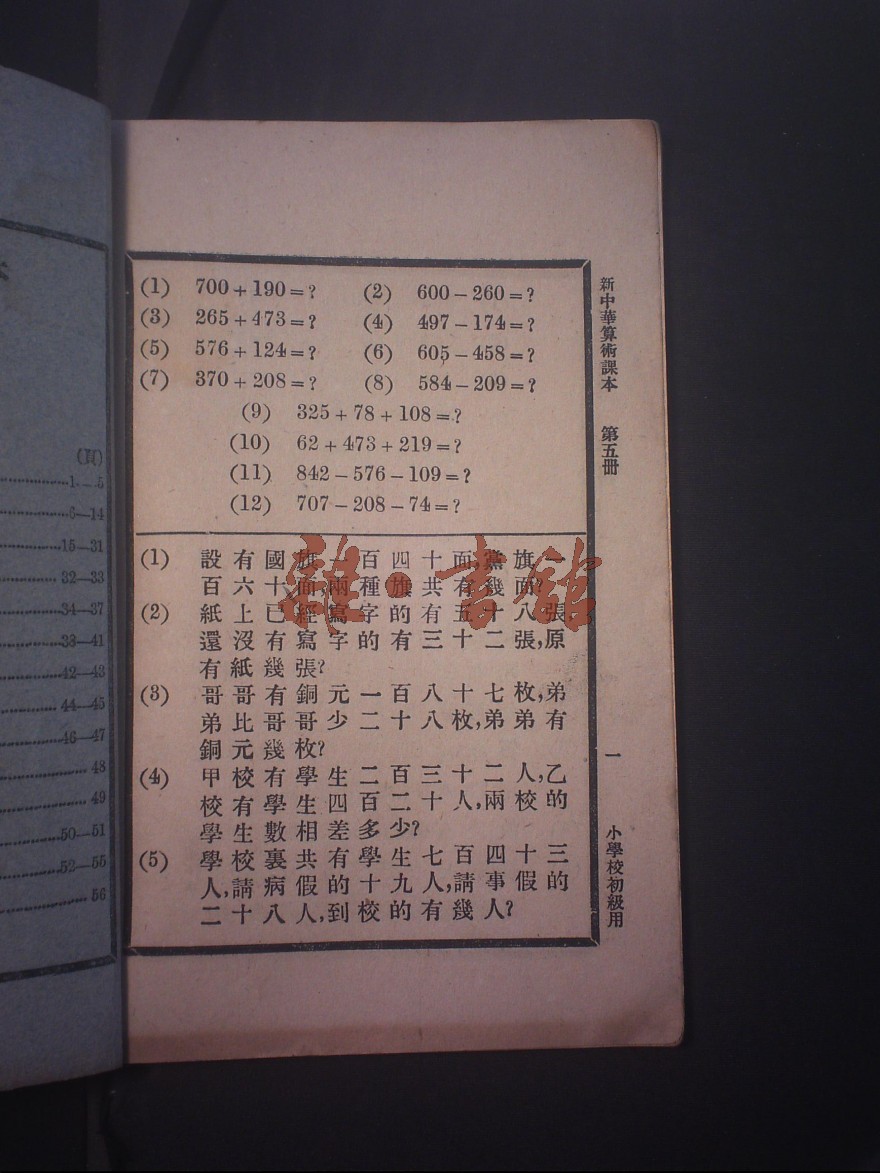 (頁)
1—5
6—14
15—31
32—33
34—37
38—41
42—43
44—45
46—47
48
49
50—51
52—55
56
(1) 700+190=? (2) 600-260=?
(3) 265+473=? (4) 497-174=?
(5) 576+124=? (6) 605-458=?
(7) 370+208=? (8) 584-209=?
(9) 325+78+108=?
(10) 62+473+219=?
(11) 842-576-109=?
(12) 707-208-74=?
(1) 設有國旗一百四十面,黨旗一
百六十面,兩種旗共有幾面?
(2) 紙上已經寫字的有五十八張,
還沒有寫字的有三十二張,原
有紙幾張?
(3) 哥哥有銅元一百八十七枚,弟
弟比哥哥少二十八枚,弟弟有
銅元幾枚?
(4) 甲校有學生二百三十二人,乙
校有學生四百二十人,兩校的
學生數相差多少?
(5) 學校裏共有學生七百四十三
人,請病假的十九人,請事假的
二十八人,到校的有幾人?
新中華算術課本 第五冊
一
小學校初級用
雜·書館